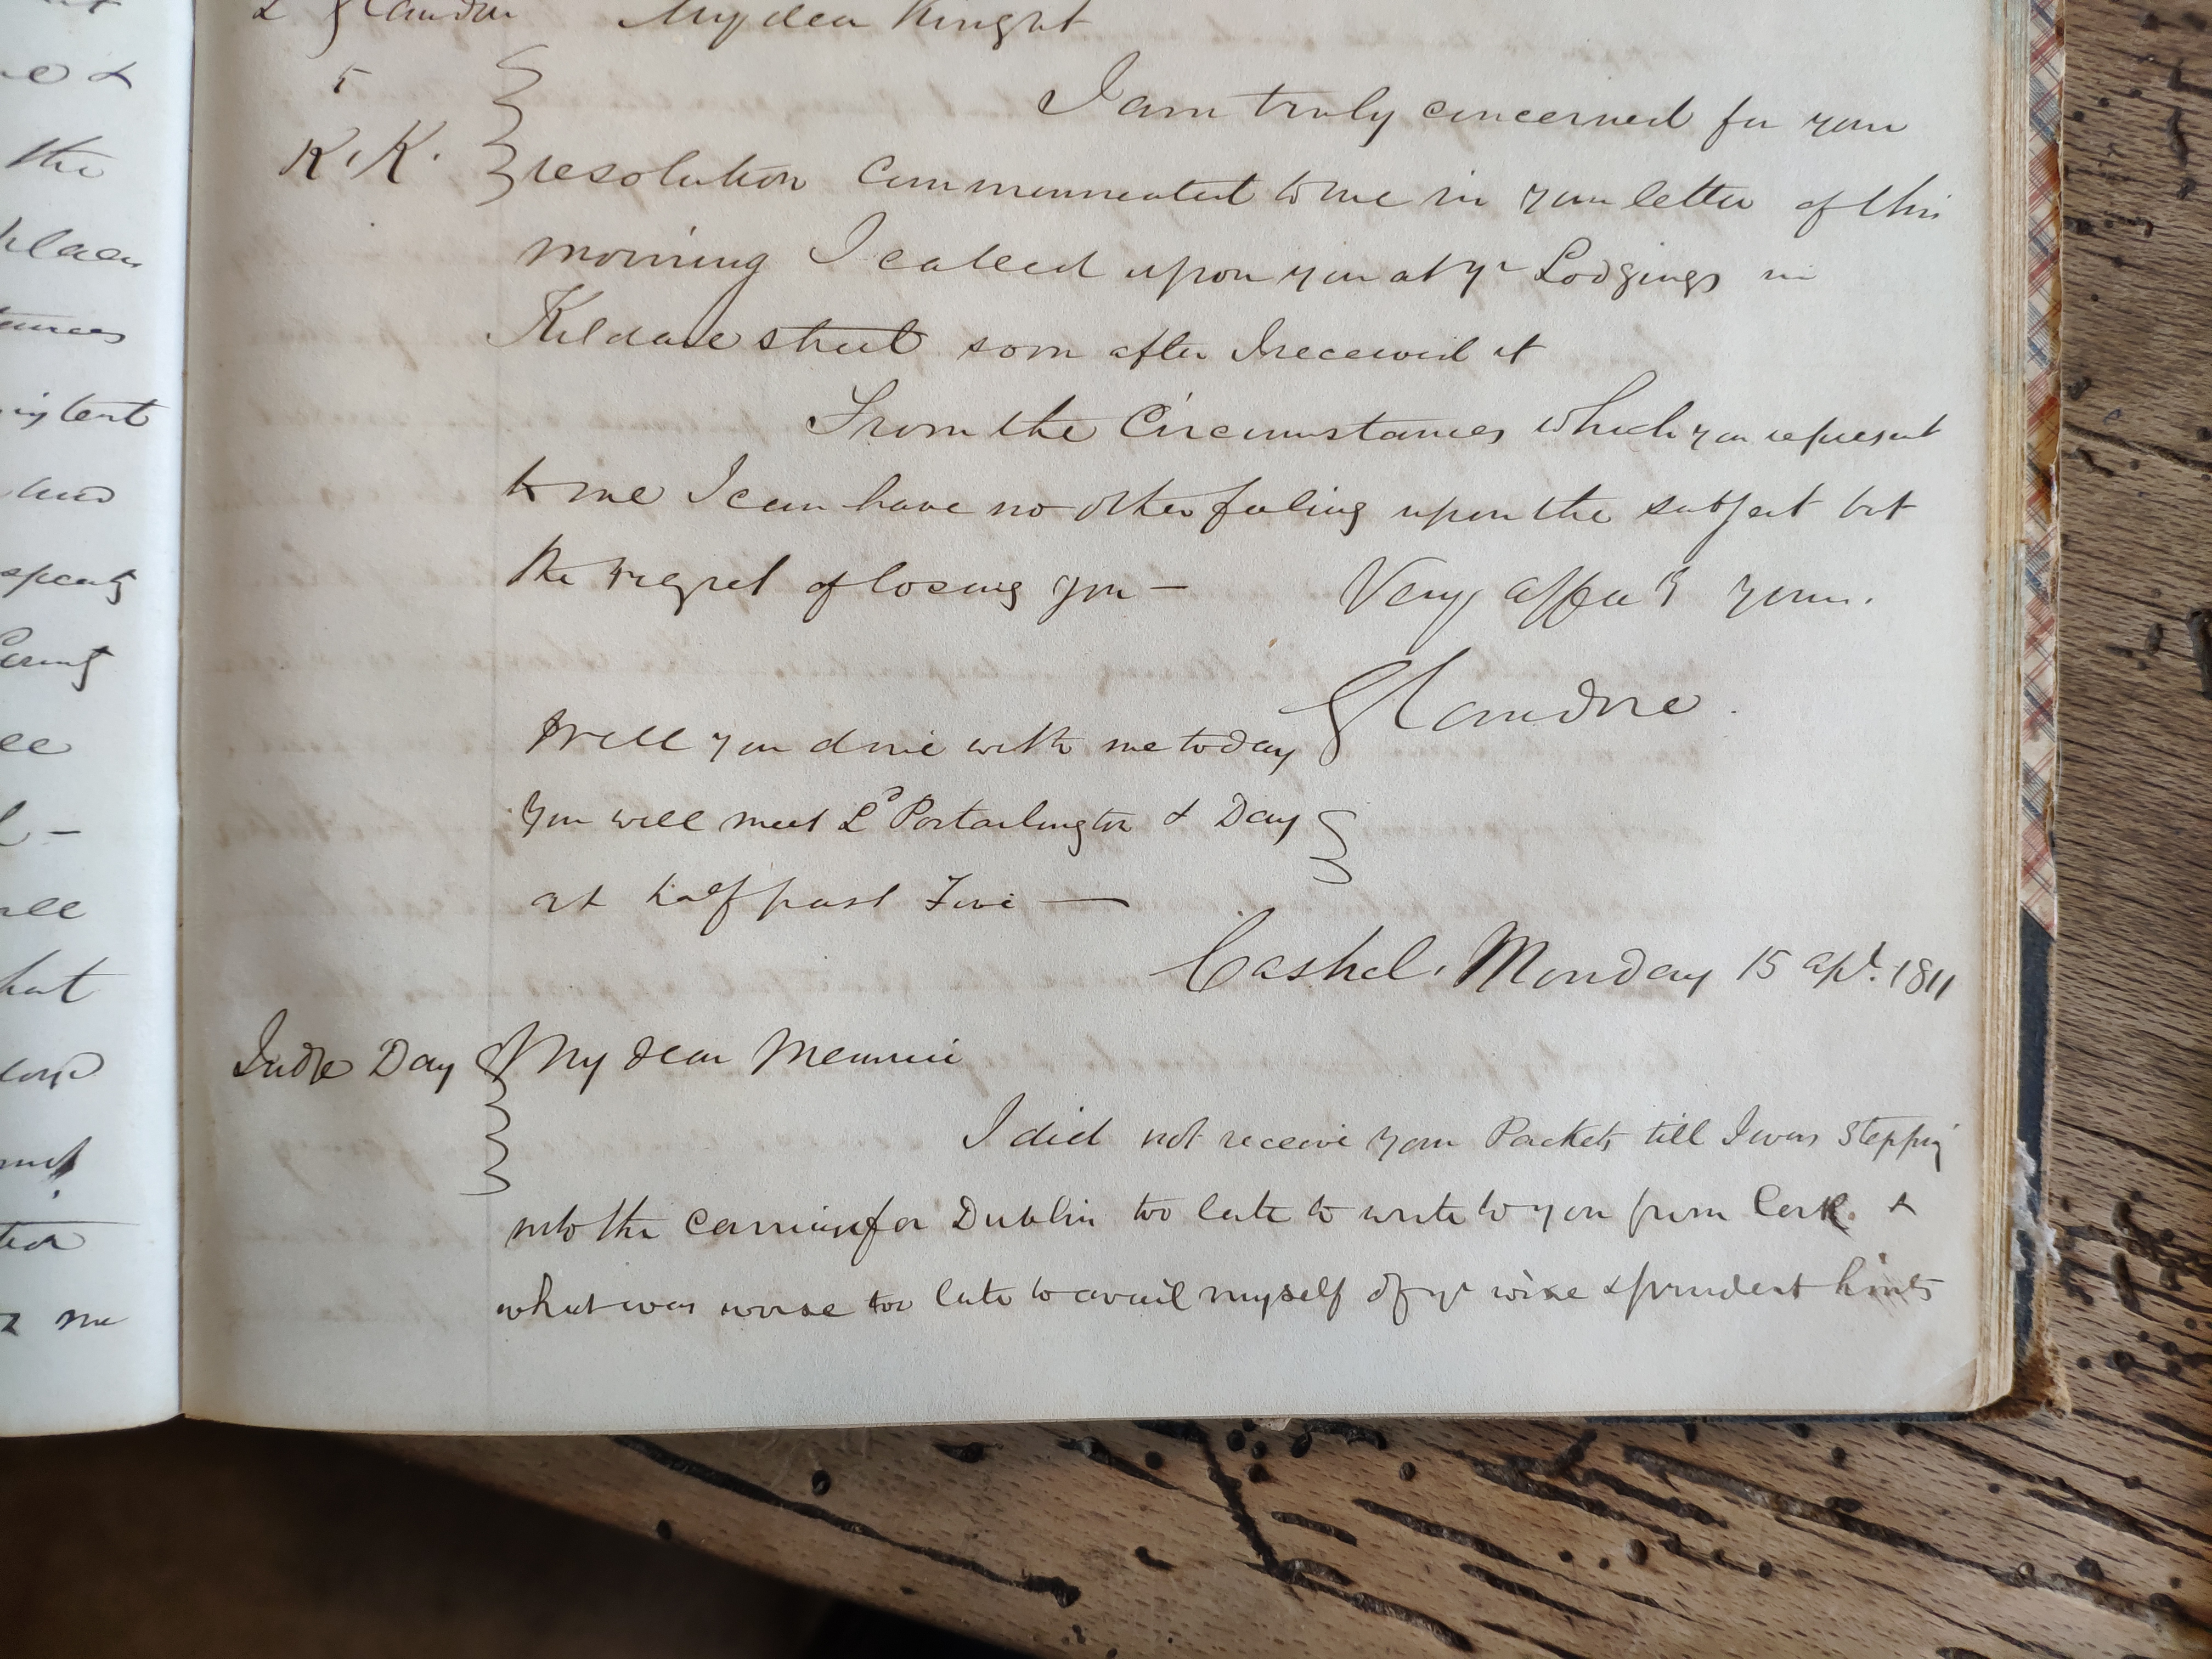 L Glandore My dear Knight
I am truly concerned for your
K. K. resolution communicated to me in your letter of this
morning I called upon you at yr Lodgings in
Kildare street soon after I received it
From the Circumstances which you represent
to me I can have no other feeling upon the subject but
the regret of losing you — Very affecly yours.
Glandore.
Will you dine with me today
You will meet Ld Portarlington & Day
at half past Five —
Cashel. Monday 15 apl. 1811
Judge Day My dear Maurice
I did not receive your Packets till I was stepping
into the carriage for Dublin too late to write to you from Cork &
what was worse too late to avail myself of yr wise & prudent hints
the
me